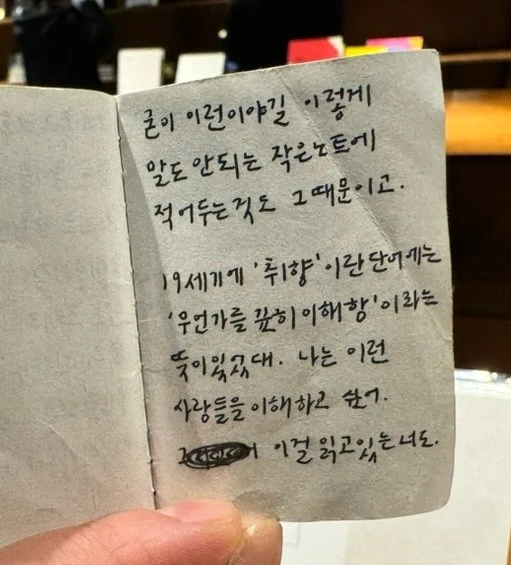 굳이 이런이야길 이렇게
말도 안되는 작은노트에
적어두는것도 그때문이고.
19세기에 '취향'이란단어에는
'무언가를 깊히이해함'이라는
뜻이있었대. 나는 이런
사람들을이해하고 싶어.
이걸 읽고있는너도.